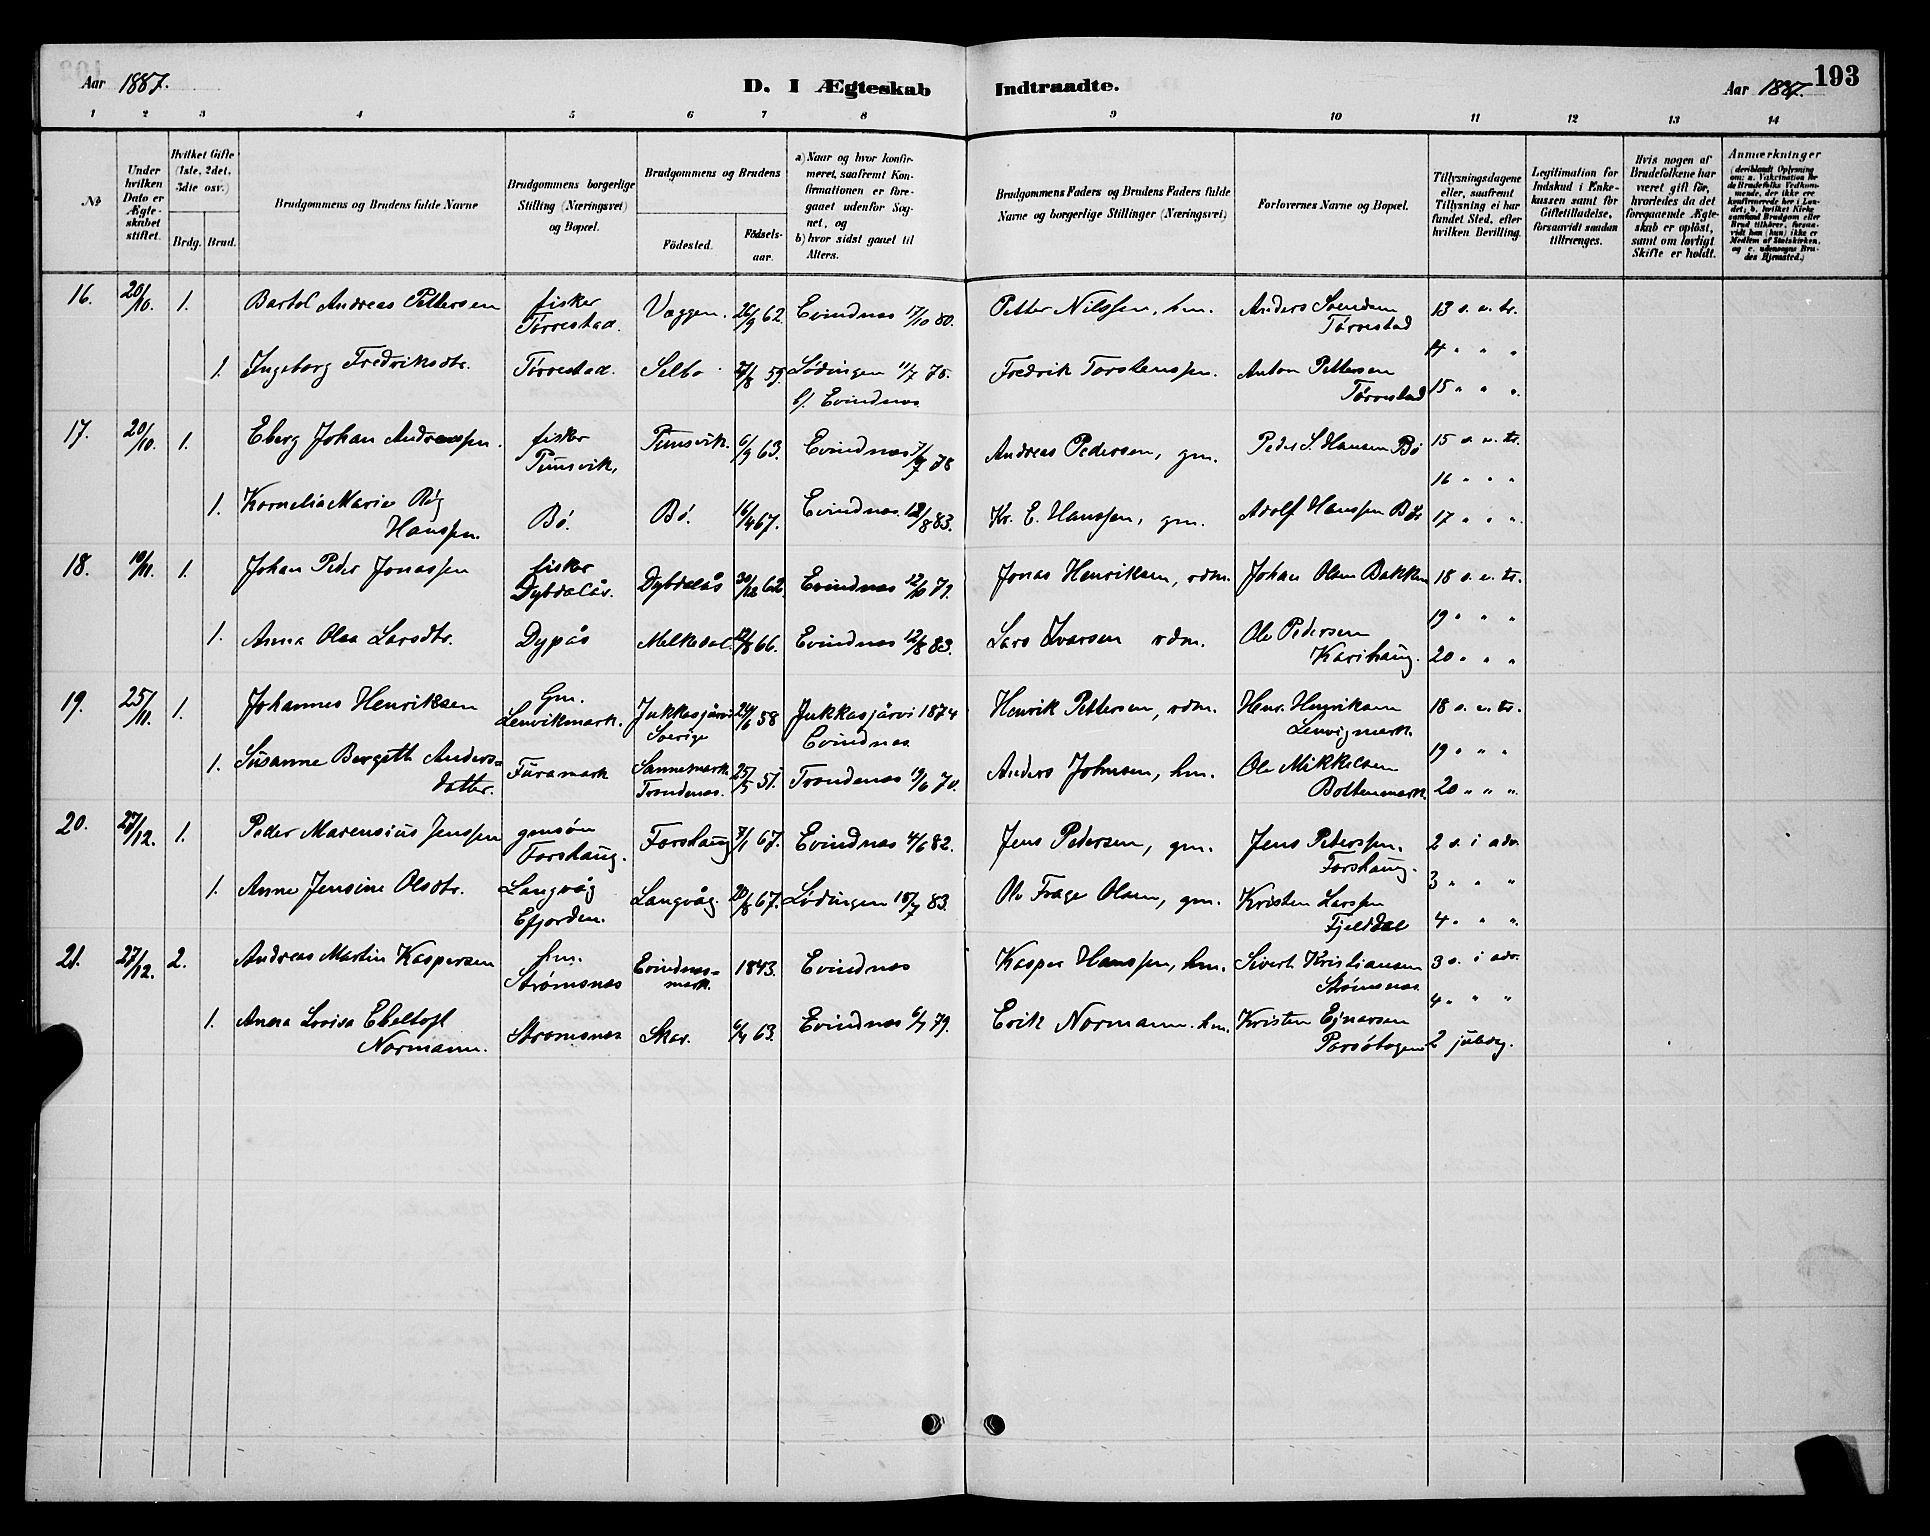 Aar 1887.
D. I Ægteskab Indtraadte.
Aar 1887.
193
1 2 3 4 5 6 7 8 9 10 11 12 13 14
№
Under hvilken Dato er Ægteskabet stiftet.
Hvilket Gifte (1ste, 2det, 3die osv.)
Brdg. Brud.
Brudgommens og Brudens fulde Navne
Brudgommens borgerlige Stilling (Næringsvei) og Bopæl.
Brudgommens og Brudens
Födested.
Födselsaar.
a) Naar og hvor konfirmeret, saafremt Konfirmationen er foregaaet udenfor Sognet, og
b) hvor sidst gaaet til Alters.
Brudgommens Faders og Brudens Faders fulde Navne og borgerlige Stillinger (Næringsvei)
Forlovernes Navne og Bopæl.
Tillysningsdagene eller, saafremt Tillysning ei har fundet Sted, efter hvilken Bevilling.
Legitimation for Indskud i Enkekassen samt for Giftetilladelse, forsaavidt saadan tiltrænges.
Hvis nogen af Brudefolkene har været gift för, hvorledes da det foregaaende Ægteskab er oplöst, samt om lovligt Skifte er holdt.
Anmærkninger
16. 20/10. 1. Bartol Andreas Pettersen fisker Tørrestad. Væggen. 26/9 62. Evindnes 17/10 80. Petter Nilssen, hm. Anders Svendsen Tørrestad 13 s. e. tr.
14 " " "
1. Ingeborg Fredriksdtr. Tørrestad. Selbo 59. Lødingen 11/7 75. b/ Evindnes Fredrik Torstenssen. Anton Pettersen Tørrestad 15 " " "
17. 20/10. 1. Eberg Johan Andreassen. fisker Punsvik. Punsvik. 6/9 63. Evindnes 78 Andreas Pedersen, gm. Peder S. Hansen Bø 15 s. e. tr.
16 " " "
1. Kornelia Marie Røg Hanssen. Bø. Bø. 16/4 67. Evindnes 12/8 83. Kr. E. Hanssen, gm. Adolf Hanssen Bø 17 " " "
18. 10/11. 1. Johan Peder Jonassen fisker Dybdalås. Dybdalås 30/12 62. Evindnes 12/10 79. Jonas Henriksen, rdm. Johan Olsen Bakken 18 s. e. tr.
19 " " "
1. Anna Olea Larsdtr. Dypås Melkedal. 12/8 66. Evindnes 12/8 83. Lars Ivarsen rdm. Ole Pedersen Karihaug. 20 " " "
19. 25/11. 1. Johannes Henriksen Gm. Lenvikmark. Jukkasjärvi Sverige 24/6 58 Jukkasjärvi 1874 Evindnes Henrik Pettersen, rdm. Henr. Henriksen Lenvigmark 18 s. e. tr.
19 " " "
1. Susanne Bergeth Andersdatter. Furamark Sannesmark Trondenes. 25/5 51. Trondenes 19/6 70. Anders Johnsen, hm. Ole Mikkelsen Boltenmark 20 " " "
20. 27/12. 1. Peder Marensius Jenssen gmsøn Forshaug. Forshaug 7/1 67. Evindnes 4/6 82. Jens Petersen, gm. Jens Peterssen. Forshaug. 2 s. i adv.
3 " " "
1. Anne Jensine Olsdtr. Langvåg Efjorden. Langvåg. 20/8 67. Lødingen 15/7 83. Ole Frage Olsen, gm. Kristen Larssen Fjelddal 4 " " "
21. 27/12. 2. Andreas Martin Kaspersen hm. Strømsnes Evindnesmark. 1843. Evindnes Kasper Hanssen, hm. Sivert Kristiansen Strømsnes 3 s. i adv.
4 " " "
1. Anna Lovisa Ebeltoft Normann. Strømsnes Skar. 6/4 63. Evindnes 6/7 79. Erik Normann. hm. Kristen Ejnarsen 2 juledag.